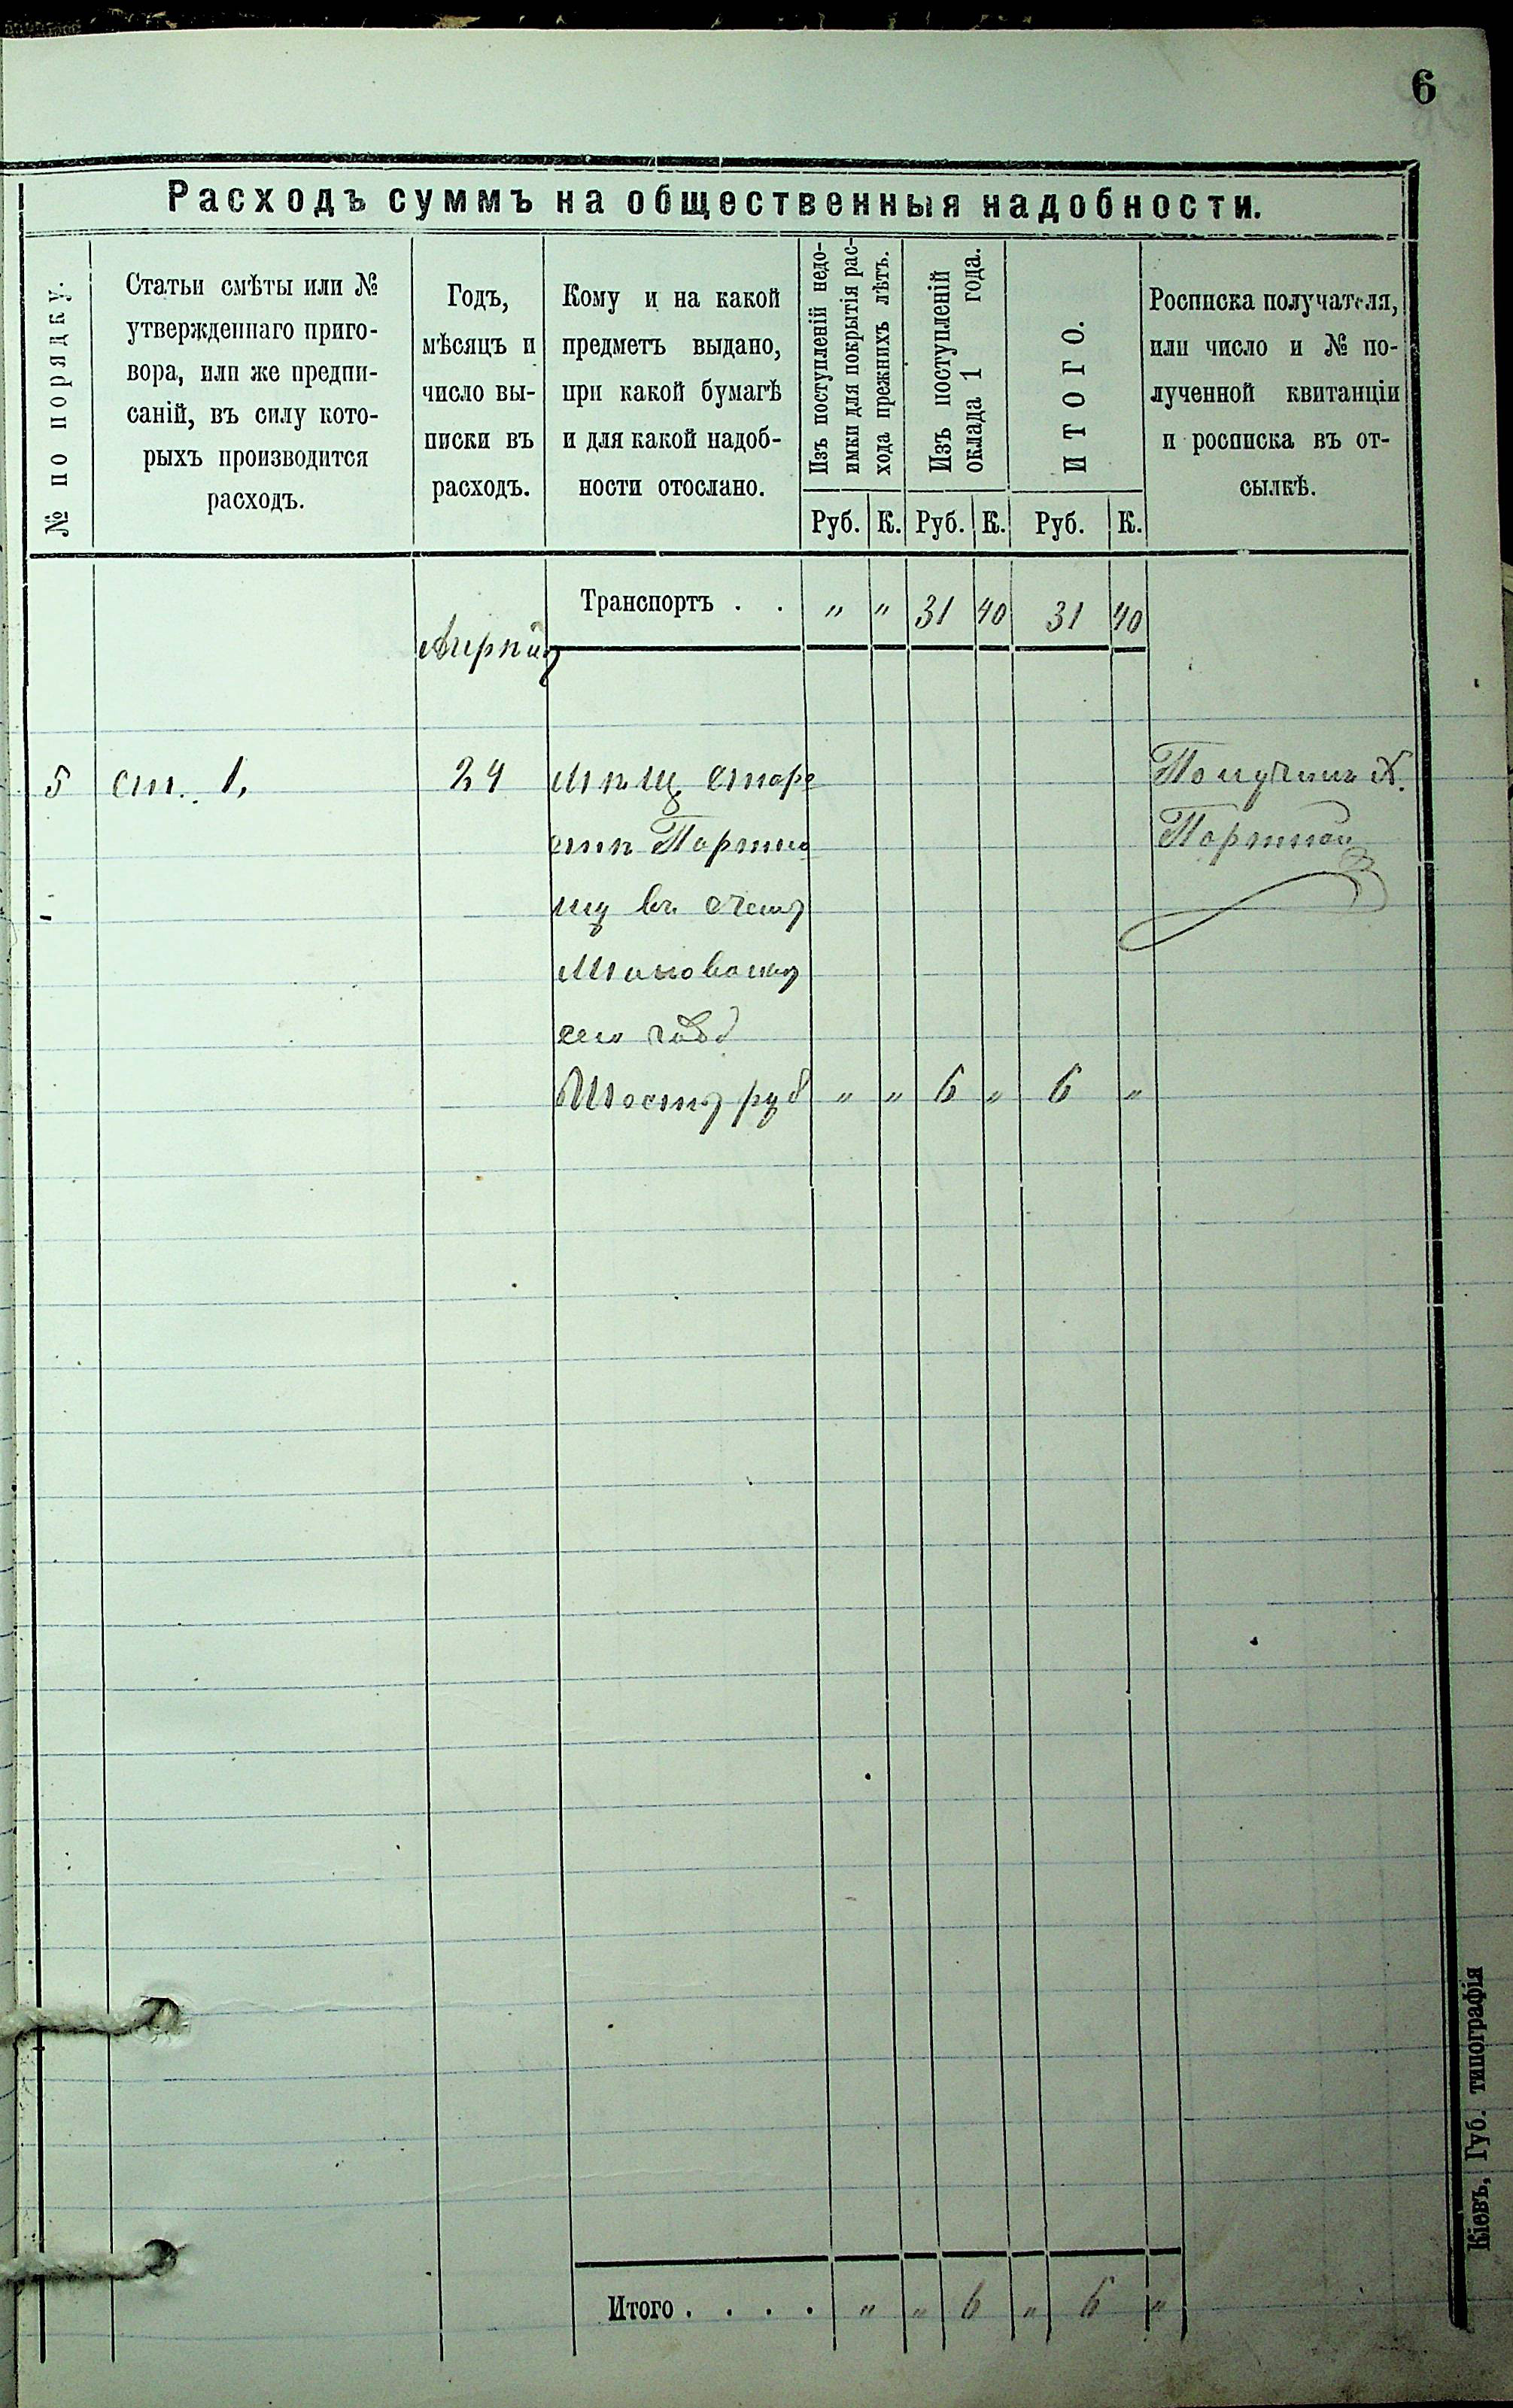 6
Расходъ суммъ на общественныя надобности.
№ по порядку.
Статьи смѣты или №
утвержденнаго приго-
вора, или же предпи-
саній, въ силу кото-
рыхъ производится
расходъ.
Годъ,
мѣсяцъ и
число вы-
писки въ
расходъ.
Кому и на какой
предметъ выдано,
при какой бумагѣ
и для какой надоб-
ности отослано.
Изъ поступленій недо-
имки для покрытія рас-
хода прежнихъ лѣтъ.
Изъ поступленій
оклада 1 года.
ИТОГО.
Росписка получателя,
или число и № по-
лученной квитанціи
и росписка въ от-
сылкѣ.
Руб. К. Руб. К. Руб. К.
Транспортъ . . „ „ 31 40 31 40
5 ст. 1, 24 Мѣщ старо
стѣ Портно
му въ счетъ
сего
Шесть руб „ „ 6 „ 6 „
Получилъ Х.
Портной
Итого . . . . „ „ 6 „ 6 „
Кіевъ, Губ. типографія